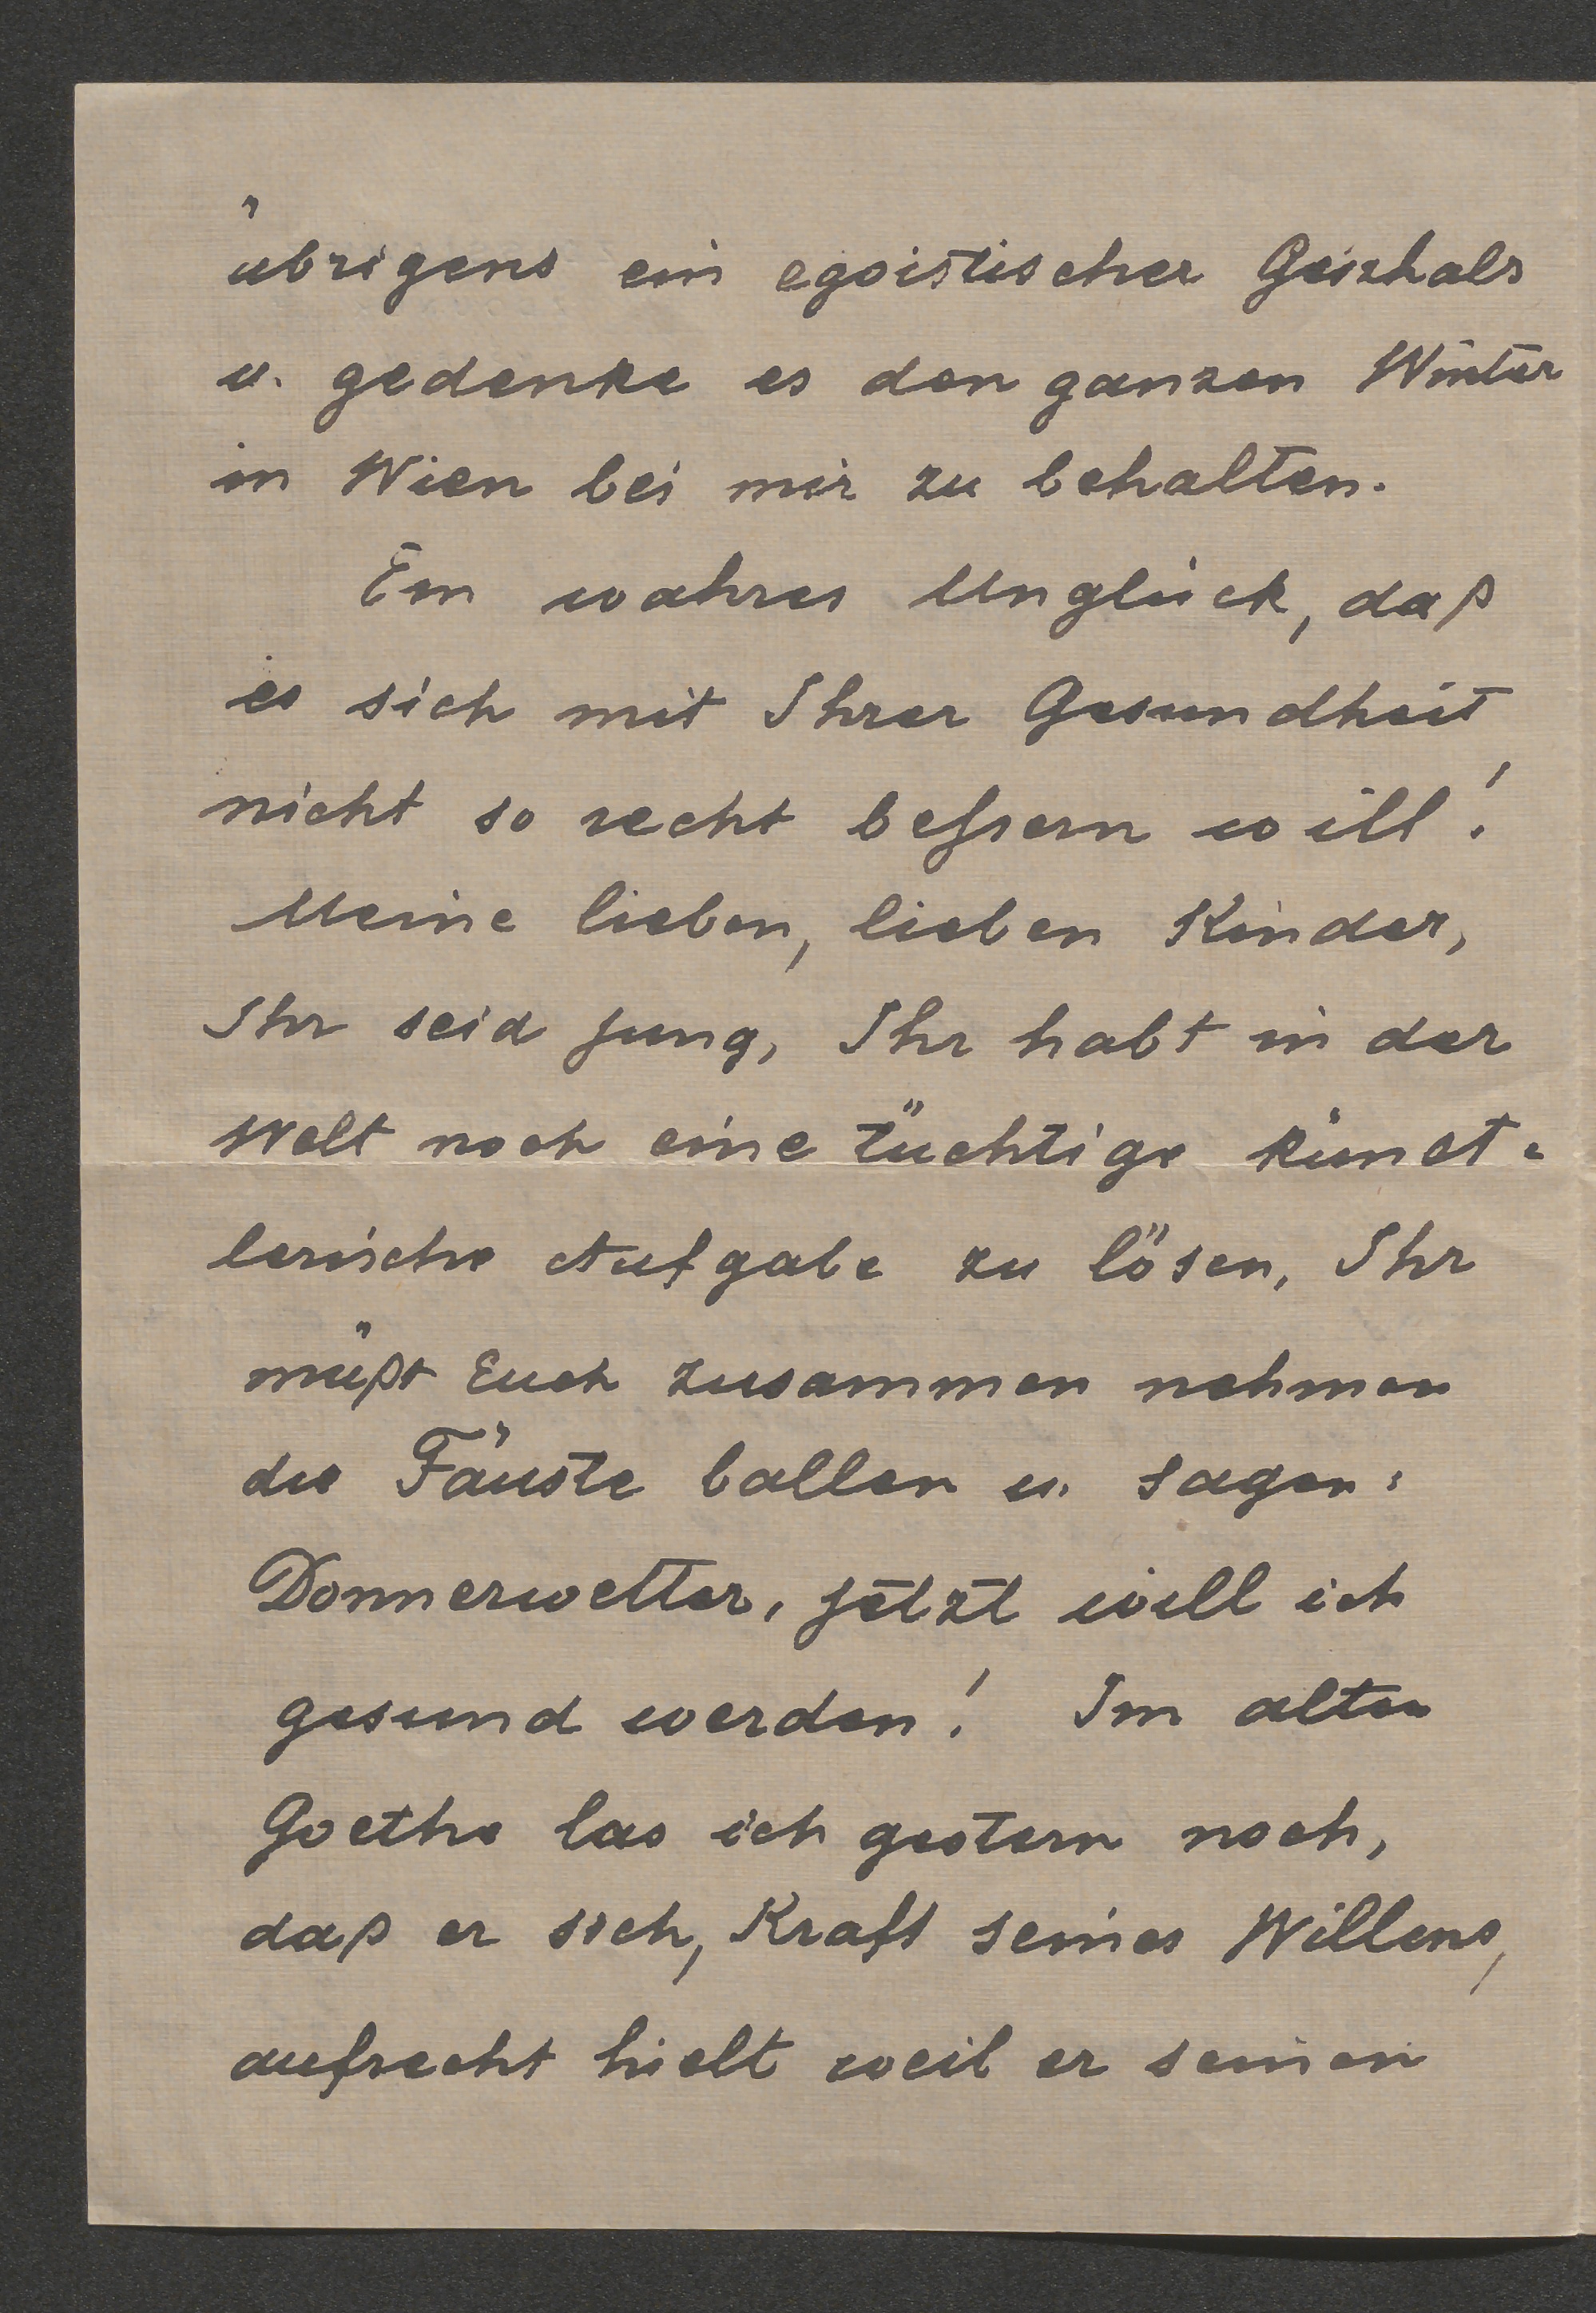 übrigens ein egoistischer Geizhals
u. gedenke es den ganzen Winter
in Wien bei mir zu behalten.
Ein wahres Unglück, daß
es sich mit Ihrer Gesundheit
nicht so recht beſsern will!
Meine lieben, lieben Kinder,
Ihr seid jung, Ihr habt in der
Welt noch eine tüchtige künst-
lerische Aufgabe zu lösen, Ihr
müßt Euch zusammen nehmen
die Fäuste ballen u. sagen:
Donnerwetter, jetzt will ich
gesund werden! Im alten
Goethe las ich gestern noch,
daß er sich, Kraft seines Willens,
aufrecht hielt weil er seinen